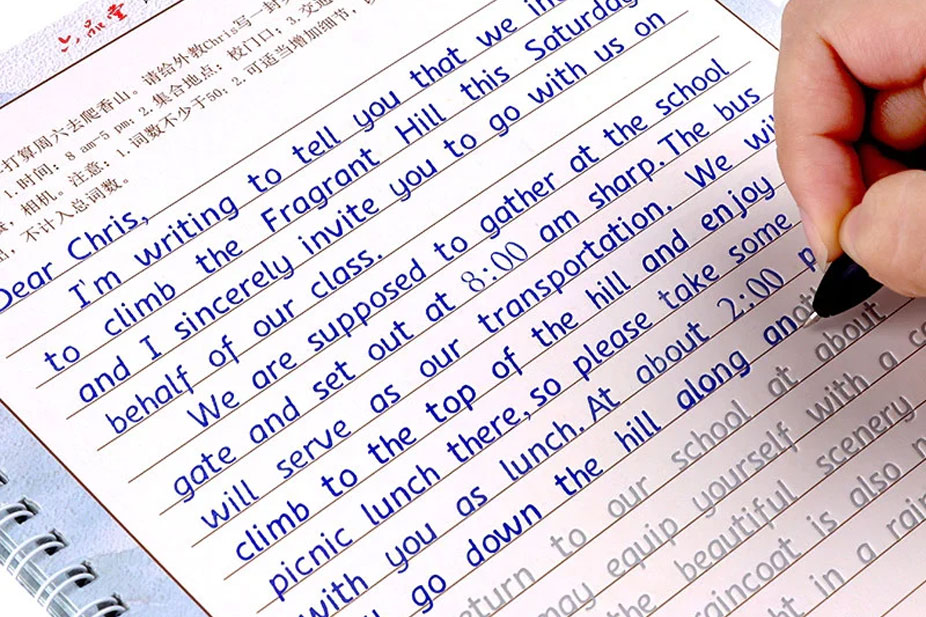 六品堂
打算周六去爬香山。请给外教Chris写一封
1.时间:8 am-5 pm;2.集合地点:校门口;3.交通
相机。注意:1.词数不少于50;2.可适当增加细节,
不计入总词数。
Dear Chris,
I'm writing to tell you that we in
to climb the Fragrant Hill this Saturday
and I sincerely invite you to go with us on
behalf of our class.
We are supposed to gather at the school
gate and set out at 8:00 am sharp. The bus
will serve as our transportation. We wil
climb to the top of the hill and enjoy
picnic lunch there, so please take some
with you as lunch. At about 2:00 p
go down the hill along anoth
eturn to our school at about
may equip yourself with a ca
the beautiful scenery
raincoat is also n
ht in a rain